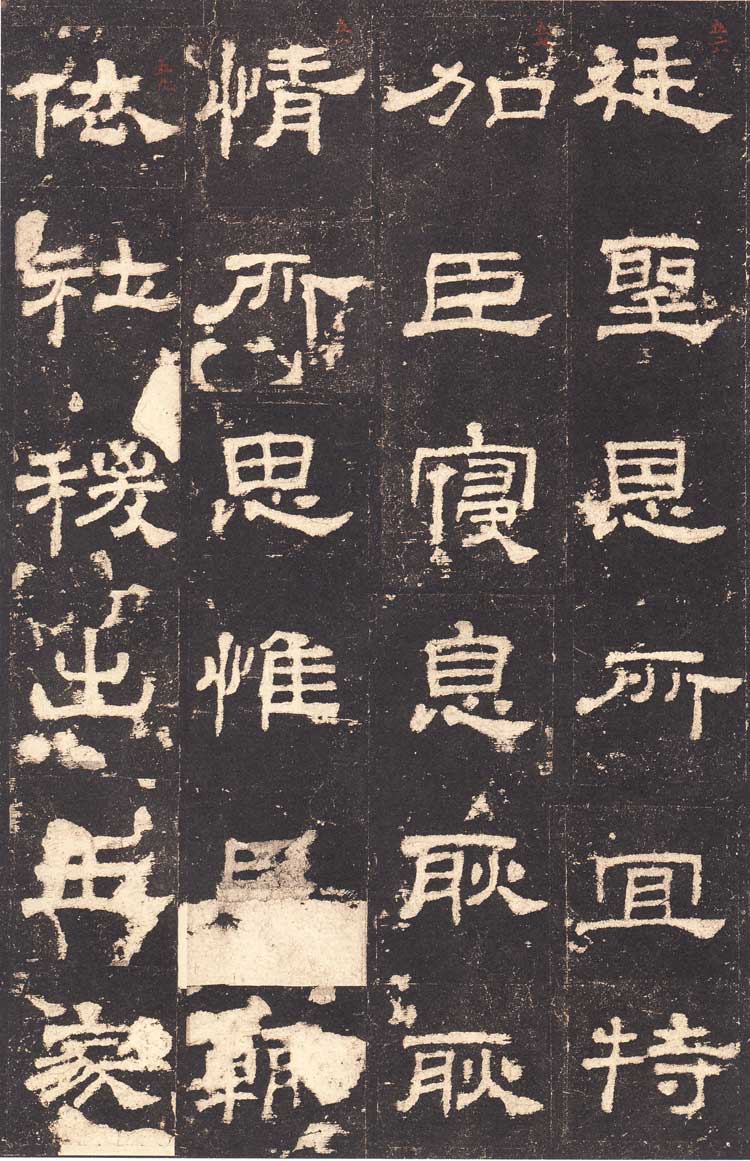 廷聖恩所宜特
加臣寑息耿耿
情所思惟臣輒
依社稷出王家